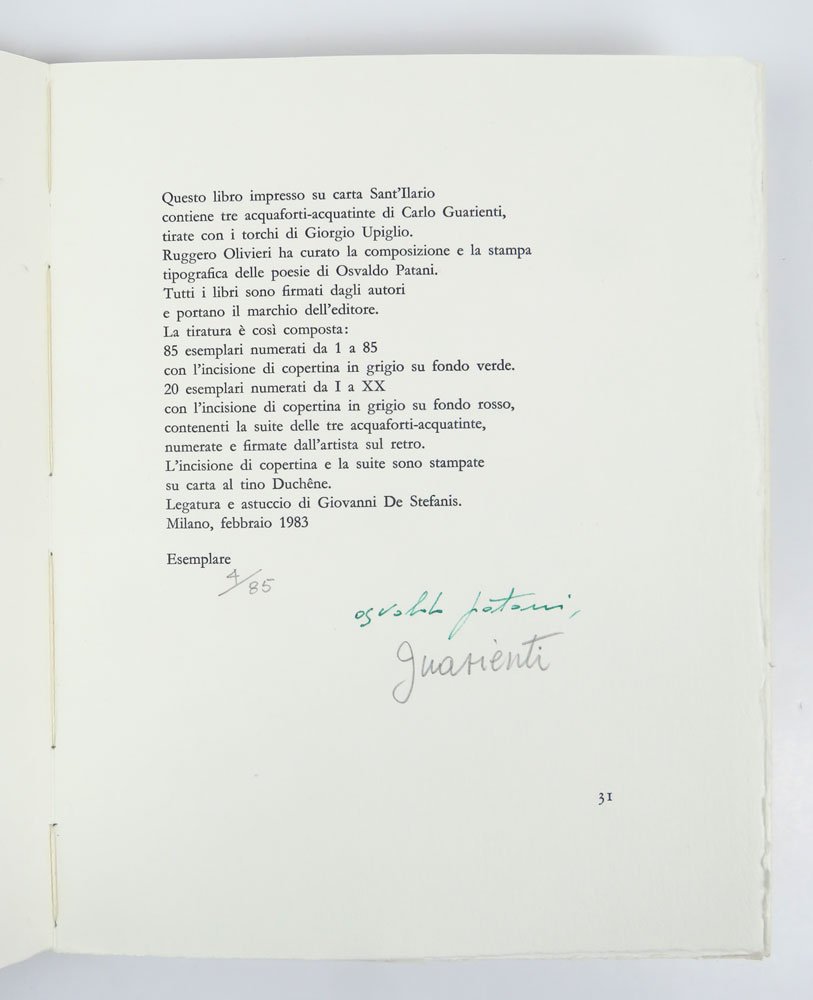 Questo libro impresso su carta Sant'Ilario
contiene tre acquaforti-acquatinte di Carlo Guarienti,
tirate con i torchi di Giorgio Upiglio.
Ruggero Olivieri ha curato la composizione e la stampa
tipografica delle poesie di Osvaldo Patani.
Tutti i libri sono firmati dagli autori
e portano il marchio dell'editore.
La tiratura è così composta:
85 esemplari numerati da 1 a 85
con l'incisione di copertina in grigio su fondo verde.
20 esemplari numerati da I a XX
con l'incisione di copertina in grigio su fondo rosso,
contenenti la suite delle tre acquaforti-acquatinte,
numerate e firmate dall'artista sul retro.
L'incisione di copertina e la suite sono stampate
su carta al tino Duchêne.
Legatura e astuccio di Giovanni De Stefanis.
Milano, febbraio 1983
Esemplare
4/85
osvaldo patani,
Guarienti
31